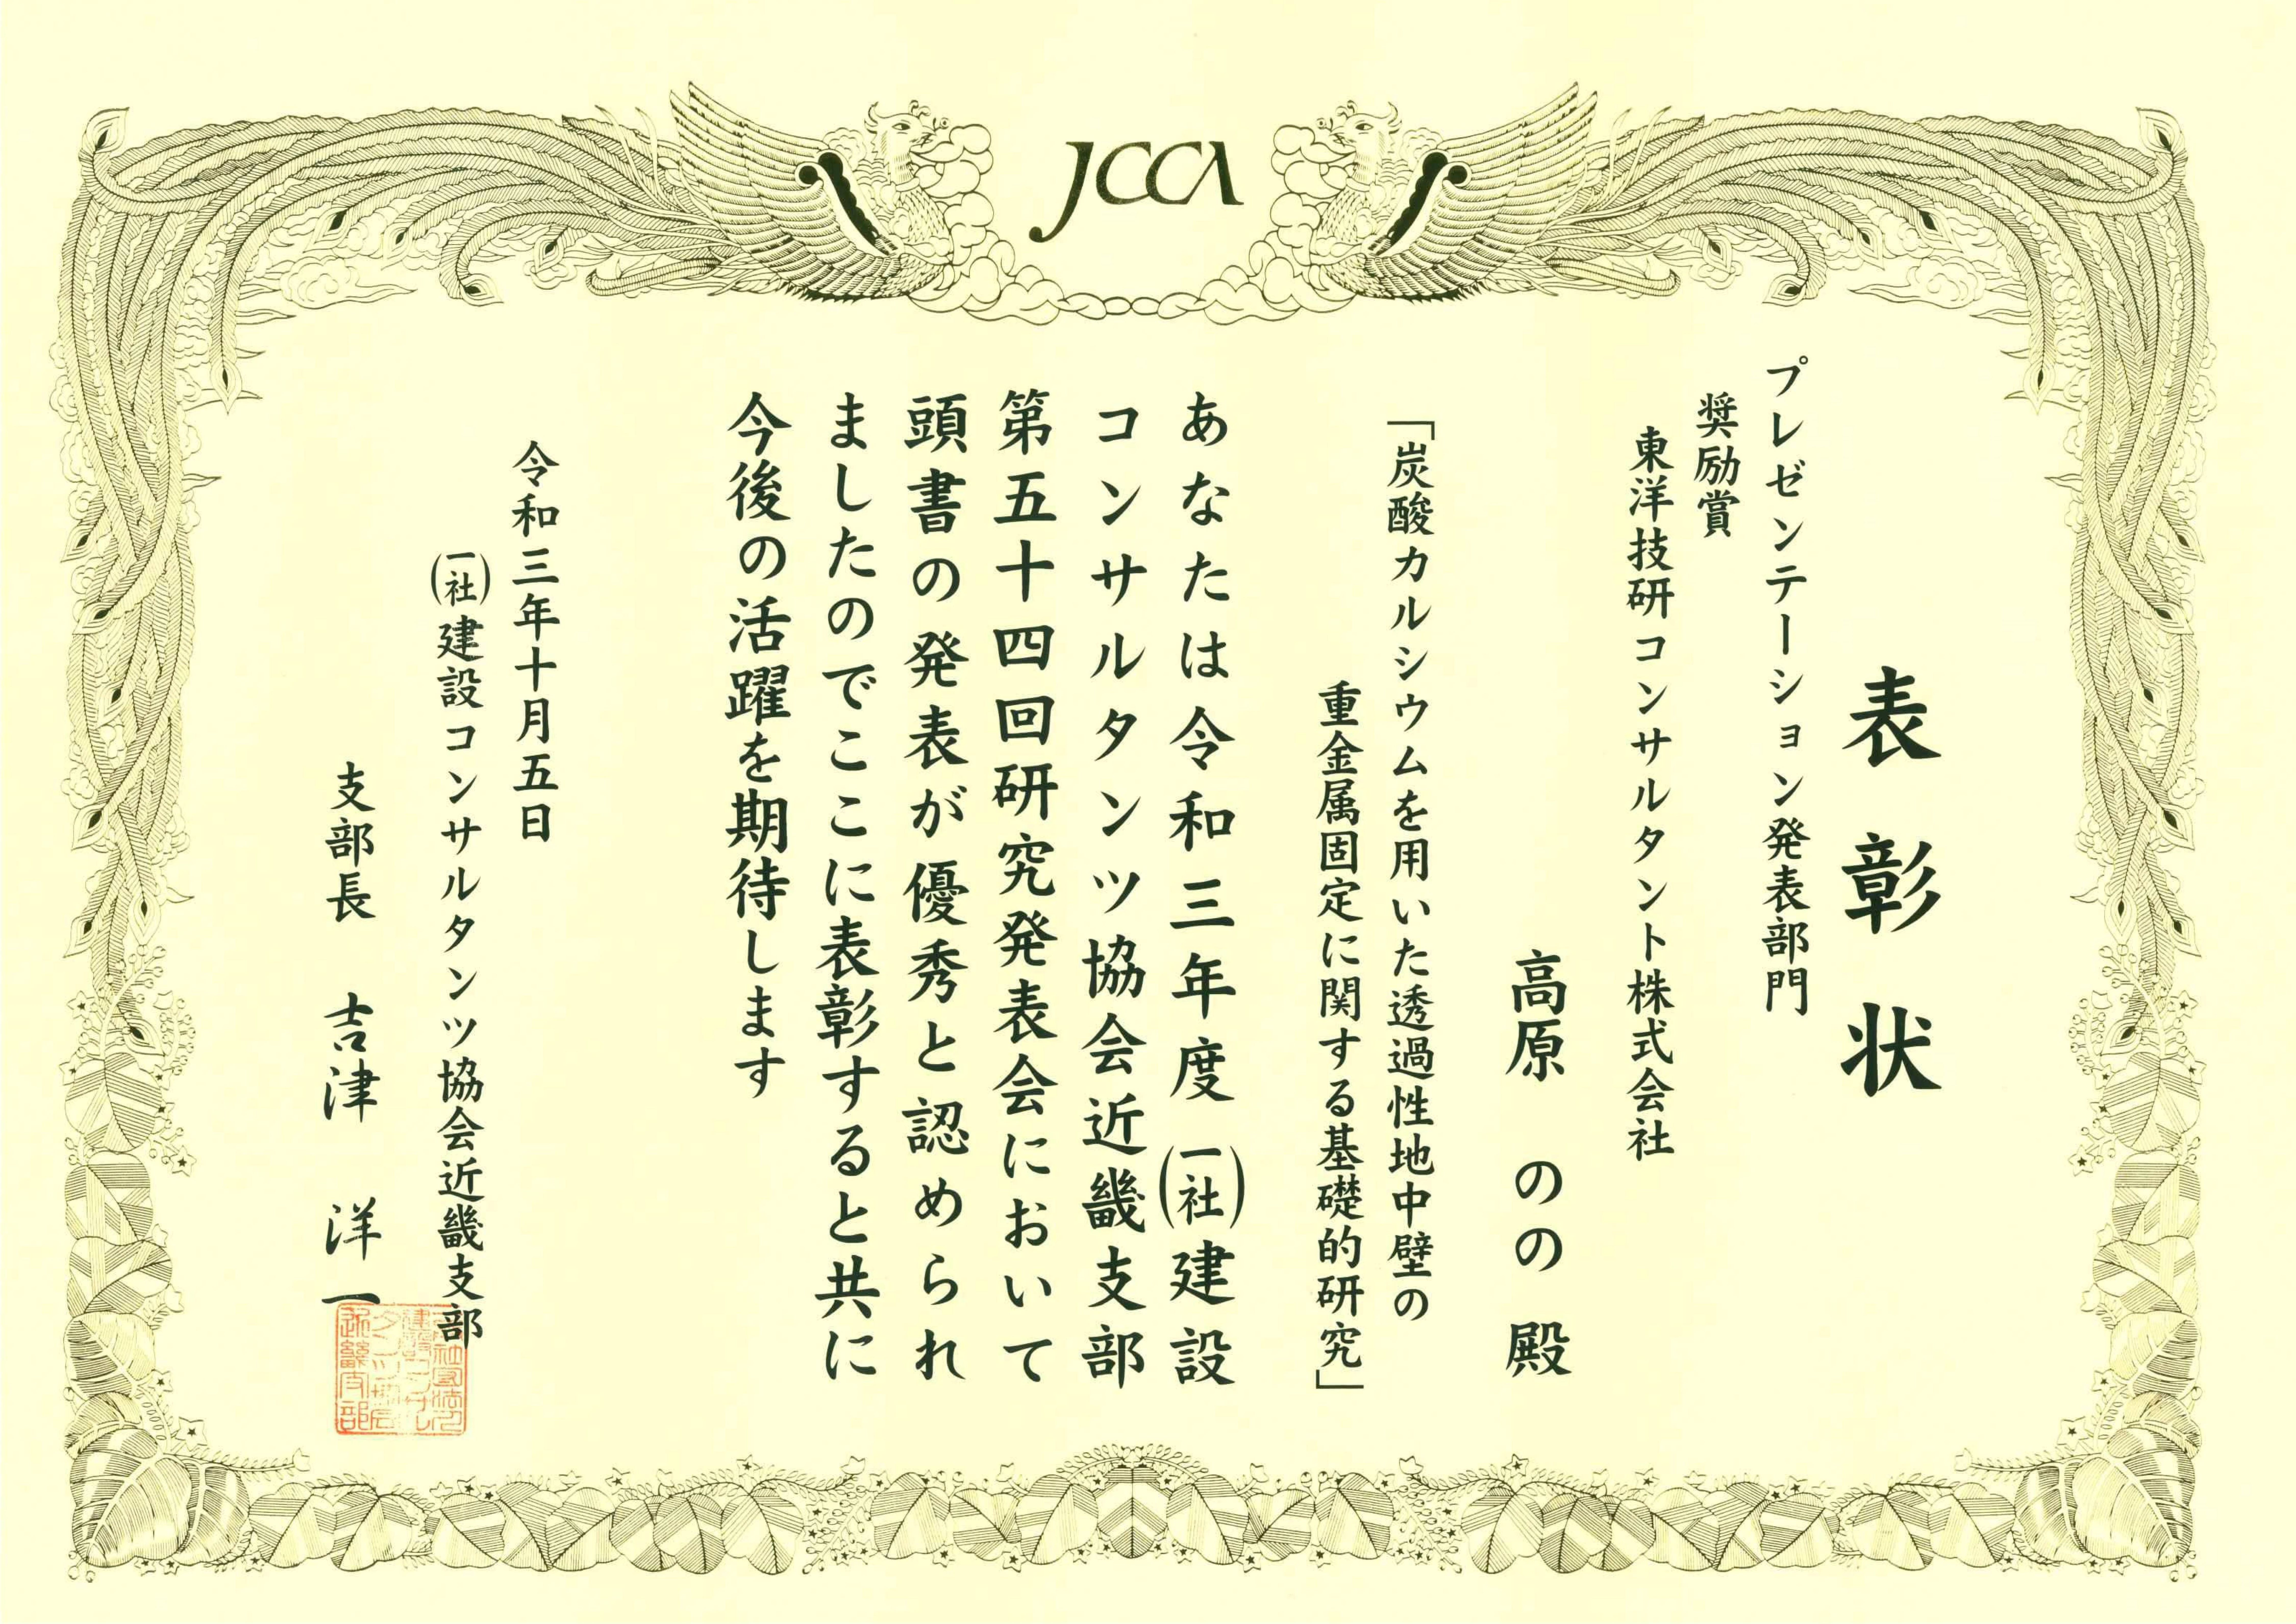 JCCA
表彰状
プレゼンテーション発表部門
奨励賞
東洋技研コンサルタント株式会社
高原 のの 殿
「炭酸カルシウムを用いた透過性地中壁の
重金属固定に関する基礎的研究」
あなたは令和三年度(一社)建設
コンサルタンツ協会近畿支部
第五十四回研究発表会において
頭書の発表が優秀と認められ
ましたのでここに表彰すると共に
今後の活躍を期待します
令和三年十月五日
(一社)建設コンサルタンツ協会近畿支部
支部長 吉津 洋一